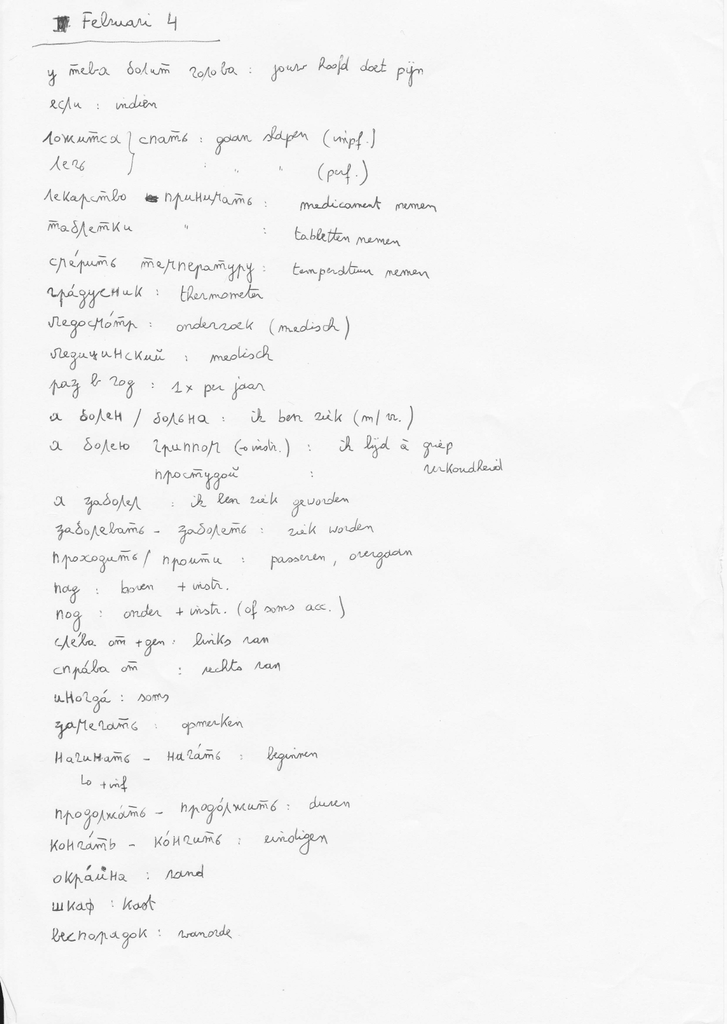 Februari 4
у тебя болит голова : jouw hoofd doet pijn
если : indien
ложится } спать : gaan slapen (impf.)
лечь } : " " (perf.)
лекарство принимать : medicament nemen
таблетки " : tabletten nemen
сме́рить температуру : temperatuur nemen
гра́дусник : thermometer
медосмо́тр : onderzoek (medisch)
медицинский : medisch
раз в год : 1x per jaar
я болен / больна : ik ben ziek (m/vr.)
я болею гриппом (→ instr.) : ik lijd à griep
простудой : verkoudheid
я заболел : ik ben ziek geworden
заболевать - заболеть : ziek worden
проходить / пройти : passeren, overgaan
над : boven + instr.
под : onder + instr. (of soms acc.)
сле́ва от + gen : links van
спра́ва от : rechts van
иногда́ : soms
замечать : opmerken
начинать - нача́ть : beginnen
↳ + inf
продолжа́ть - продо́лжить : duren
конча́ть - ко́нчить : eindigen
окра́ина : rand
шкаф : kast
беспорядок : wanorde